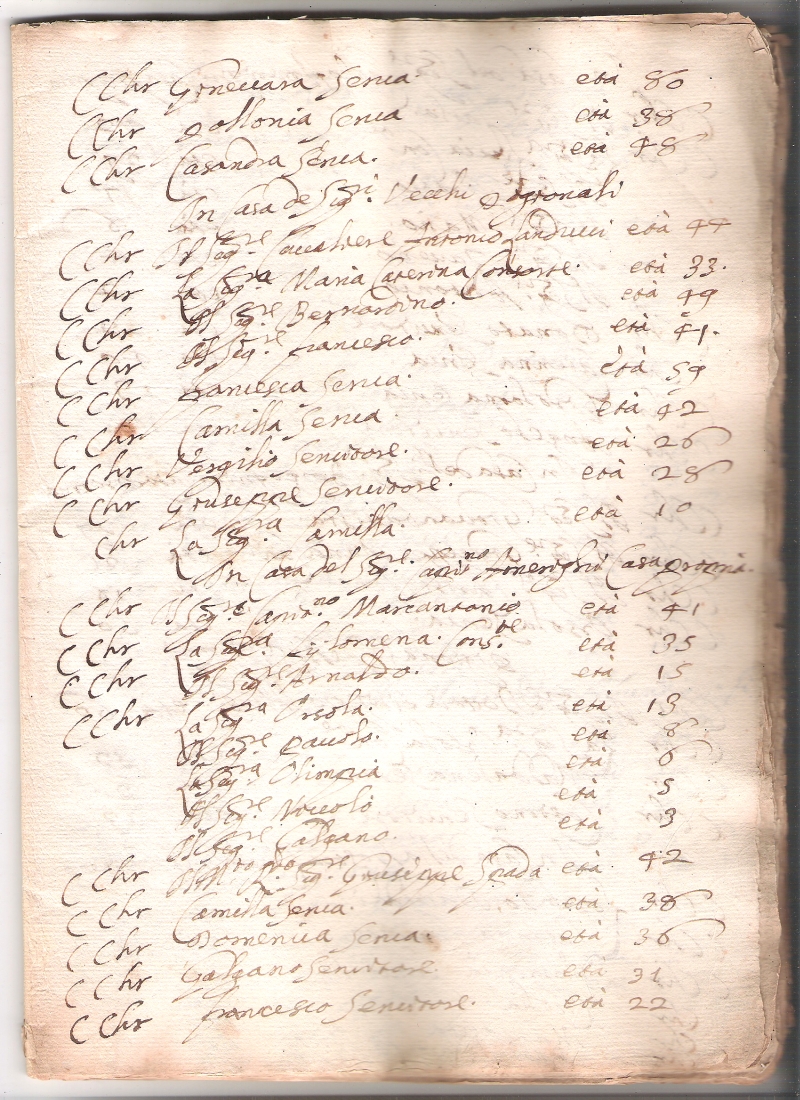 CChr Ginevara Serua età 80
CChr Pollonia Serua età 38
CChr Casandra Serua. età 48
In Casa de Sigri. Vecchi
CChr Il Sigre. Caualiere Antonio Landucci età 44
CChr La Sigra Maria Caterina Consorte. età 33.
CChr Il Sigre. Bernardino. età 49
CChr Il Sigre. francesco. età 41.
CChr francesca Serua. età 59
CChr Camilla Serua. età 42
CChr Vergilio Seruitore. età 26
CChr Giuseppe Seruitore. età 28
Chr La Sigra Camilla. età 10
In Casa del Sigre. Casa propria.
CChr Il Sigre. Capno. Marcantonio età 41
CChr La Sigra. Filomena. Conste. età 35
CChr Il Sigre. Arnaldo. età 15
CChr La Sigra Orsola. età 13
Il Sigre Pauolo. età 8
La Sigra Olimpia età 6
Il Sigre Niccolò età 5
Il Sigre. Galgano. età 3
CChr Il Sigre Giuseppe Spada età 42
CChr Camilla Serua. età 38
CChr Domenica Serua. età 36
CChr Galgano Seruitore. età 31
CChr francesco Seruitore. età 22